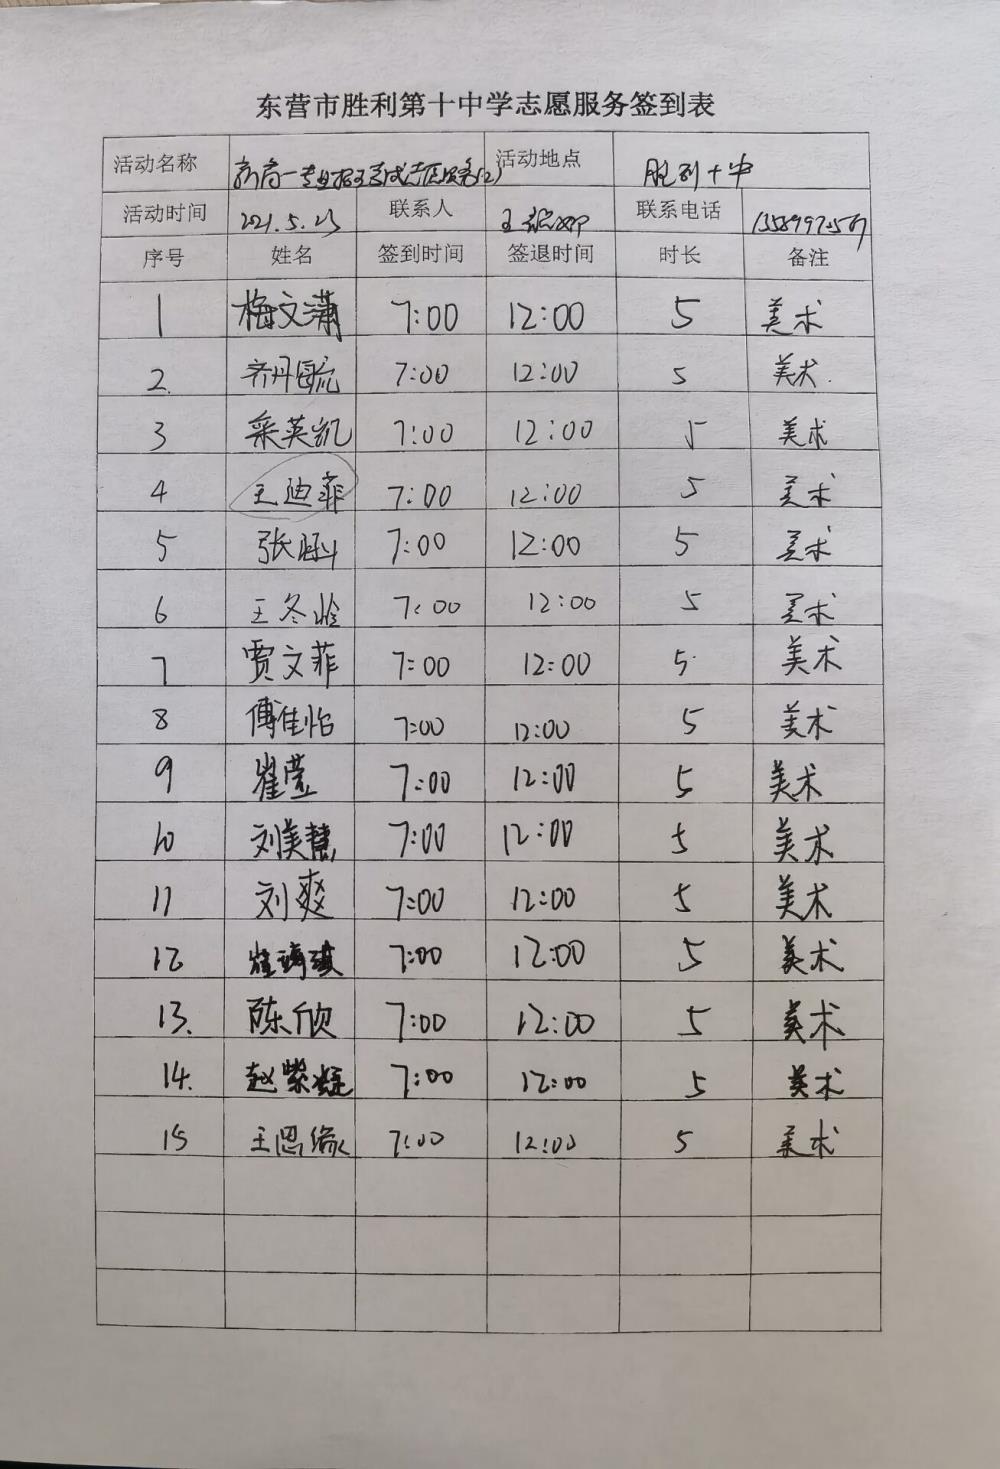 东营市胜利第十中学志愿服务签到表
活动名称 新高一专业招生考试志愿服务(2) 活动地点 胜利十中
活动时间 2021.5.23 联系人 王 联系电话
序号 姓名 签到时间 签退时间 时长 备注
1 梅文潇 7:00 12:00 5 美术
2. 齐丹毓 7:00 12:00 5 美术.
3 英凯 7:00 12:00 5 美术
4 王迪菲 7:00 12:00 5 美术
5 张 7:00 12:00 5 美术
6 王冬怜 7:00 12:00 5 美术
7 贾文菲 7:00 12:00 5 美术
8 傅佳怡 7:00 12:00 5 美术
9 崔莹 7:00 12:00 5 美术
10 刘美慧 7:00 12:00 5 美术
11 刘爽 7:00 12:00 5 美术
12 崔 7:00 12:00 5 美术
13. 陈欣 7:00 12:00 5 美术
14. 赵紫 7:00 12:00 5 美术
15 王思缘 7:00 12:00 5 美术